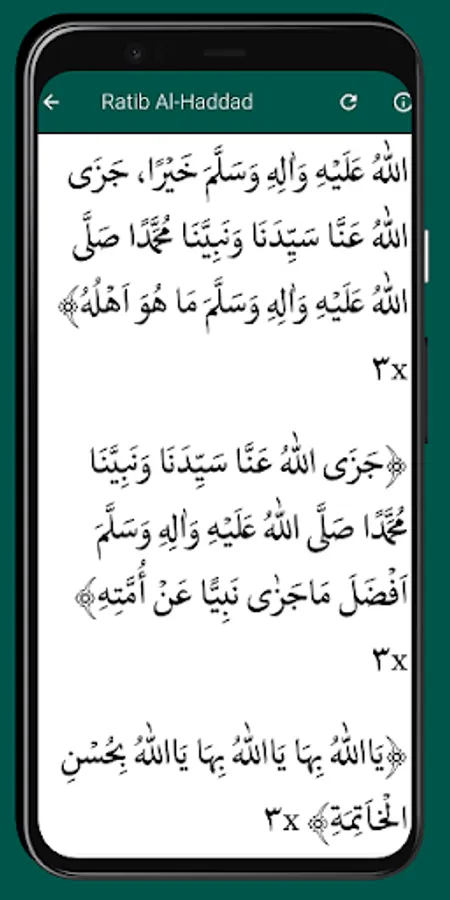 Ratib Al-Haddad
اللهُ عَلَيْهِ وَاٰلِهِ وَسَلَّمَ خَيْرًا، جَزَى
اللهُ عَنَّا سَيِّدَنَا وَنَبِيَّنَا مُحَمَّدًا صَلَّى
اللهُ عَلَيْهِ وَاٰلِهِ وَسَلَّمَ مَا هُوَ اَهْلُهُ﴾
٣x
﴿جَزَى اللهُ عَنَّا سَيِّدَنَا وَنَبِيَّنَا
مُحَمَّدًا صَلَّى اللهُ عَلَيْهِ وَاٰلِهِ وَسَلَّمَ
اَفْضَلَ مَاجَزٰى نَبِيًّا عَنْ أُمَّتِهِ﴾
٣x
﴿يَااللهُ بِهَا يَااللهُ بِهَا يَااللهُ بِحُسْنِ
الْخَاتِمَةِ﴾ ٣x